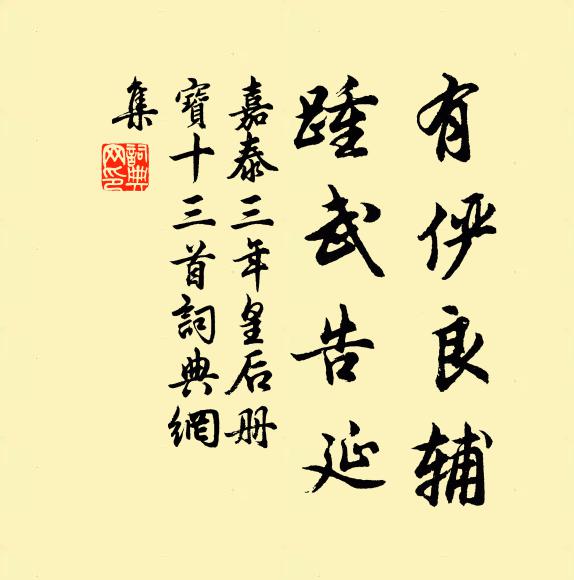 有俨良辅
踵武告延
嘉泰三年皇后册
寶十三首詞典網
集
詞典
网印